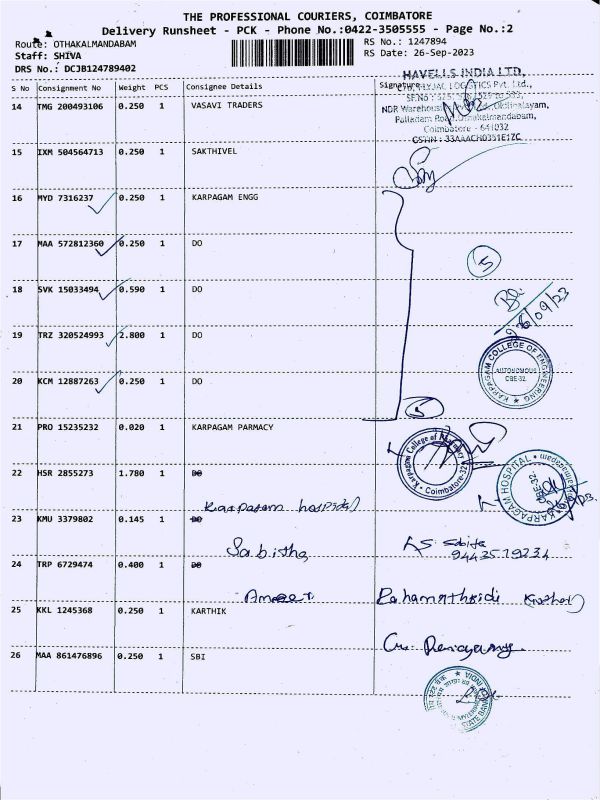 THE PROFESSIONAL COURIERS, COIMBATORE
Delivery Runsheet - PCK - Phone No.:0422-3505555 - Page No.:2
Route: OTHAKALMANDABAM
RS No.: 1247894
Staff: SHIVA
RS Date: 26-Sep-2023
DRS No.: DCJB124789402
HAVELLS INDIA LTD,
S No Consignment No Weight PCS Consignee Details Signature
LOGISTICS Pvt. Ltd.,
14 TMG 200493106 0.250 1 VASAVI TRADERS
NDR Warehousing
Palladam Road, Othakalmandabam,
Coimbatore - 641032
GSTIN : 33AAACH0351E1ZC
15 IXM 504564713 0.250 1 SAKTHIVEL
16 MYD 7316237 0.250 1 KARPAGAM ENGG
17 MAA 572812360 0.250 1 DO
5
18 SVK 15033494 0.590 1 DO
26/09/23
19 TRZ 320524993 2.800 1 DO
KARPAGAM COLLEGE OF ENGINEERING
AUTONOMOUS
CBE-32.
20 KCM 12887263 0.250 1 DO
5
21 PRO 15235232 0.020 1 KARPAGAM PARMACY
Karpagam College of
Coimbatore-32
KARPAGAM HOSPITAL
CBE-32.
22 HSR 2855273 1.780 1 DO
Karpagam hospital
23 KMU 3379802 0.145 1 DO
Sabitha
9443519234
24 TRP 6729474 0.400 1 DO
25 KKL 1245368 0.250 1 KARTHIK
26 MAA 861476896 0.250 1 SBI
STATE BANK